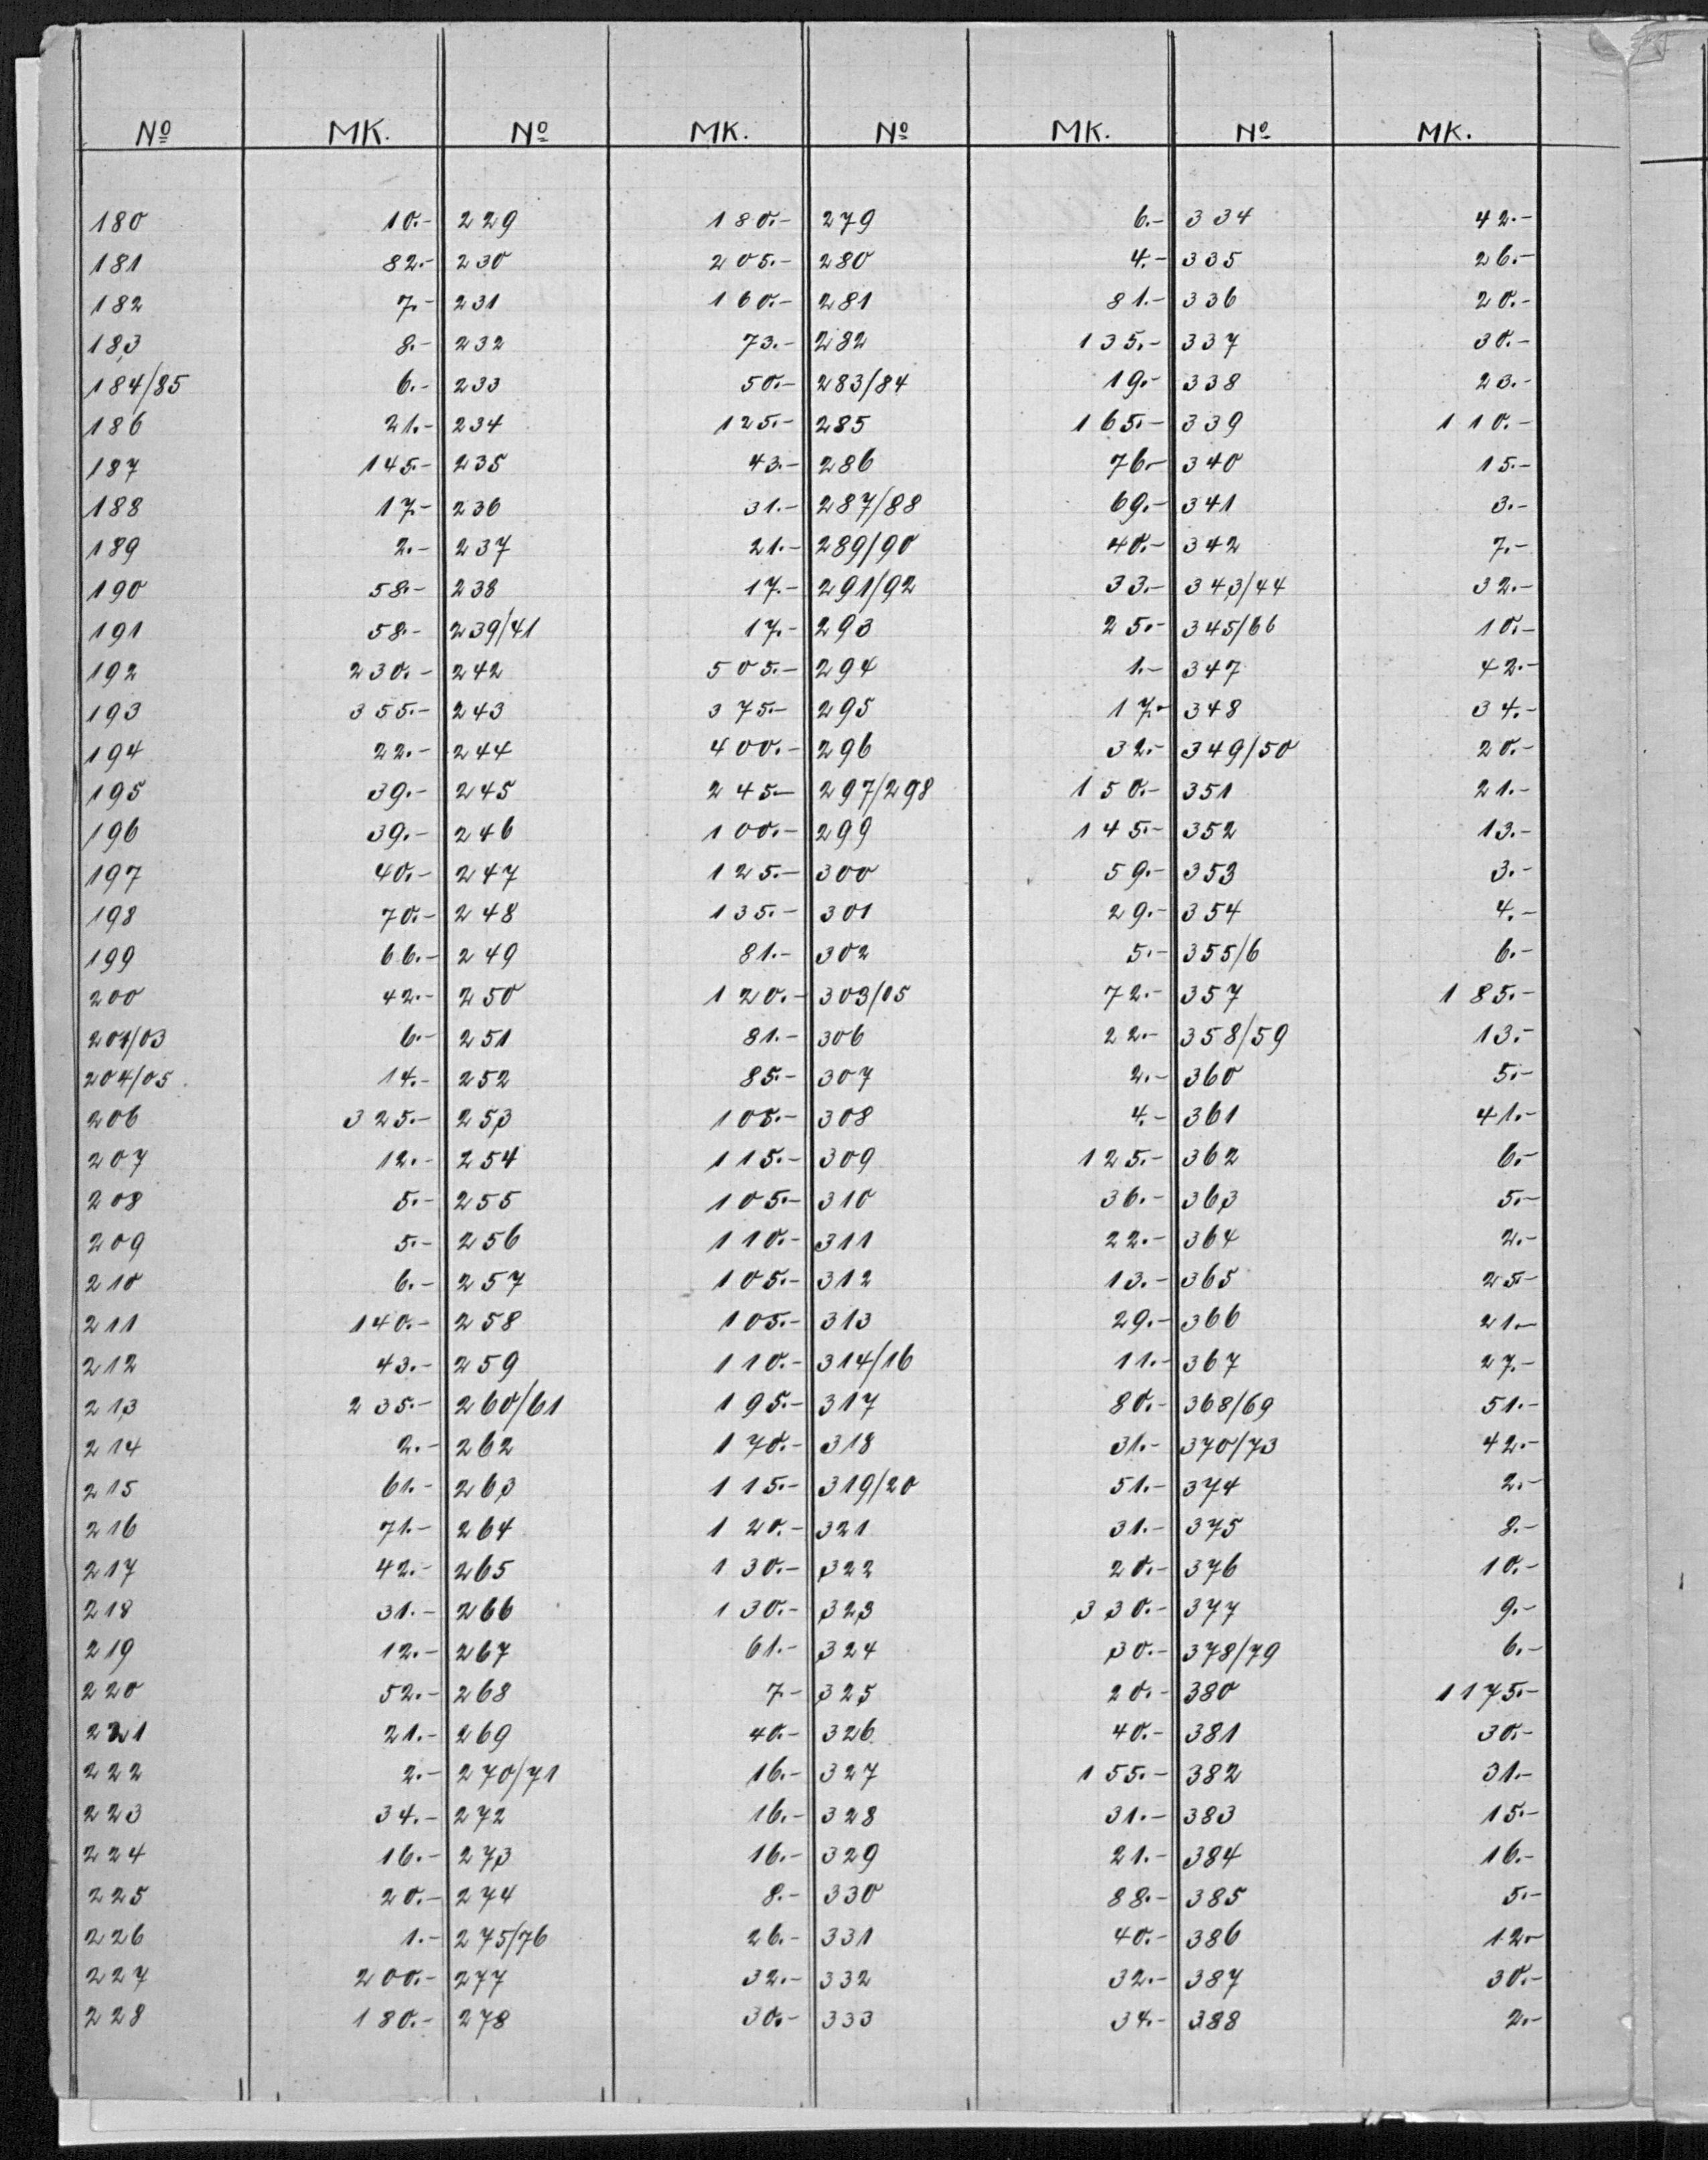 Nº MK. Nº MK. Nº MK. Nº MK.
180 10.- 229 180.- 279 6.- 334 42.-
181 82.- 230 205.- 280 4.- 335 26.-
182 7.- 231 160.- 281 81.- 336 20.-
183 8.- 232 73.- 282 135.- 337 30.-
184/85 6.- 233 50.- 283/84 19.- 338 23.-
186 21.- 234 125.- 285 165.- 339 110.-
187 145.- 235 43.- 286 76.- 340 15.-
188 17.- 236 31.- 287/88 69.- 341 3.-
189 2.- 237 21.- 289/90 40.- 342 7.-
190 58.- 238 17.- 291/92 33.- 343/44 32.-
191 58.- 239/41 17.- 293 25.- 345/66 10.-
192 230.- 242 505.- 294 1.- 347 42.-
193 355.- 243 375.- 295 17.- 348 34.-
194 22.- 244 400.- 296 32.- 349/50 20.-
195 39.- 245 245.- 297/298 150.- 351 21.-
196 39.- 246 100.- 299 145.- 352 13.-
197 40.- 247 125.- 300 59.- 353 3.-
198 70.- 248 135.- 301 29.- 354 4.-
199 66.- 249 81.- 302 5.- 355/6 6.-
200 42.- 250 120.- 303/05 72.- 357 185.-
201/03 6.- 251 81.- 306 22.- 358/59 13.-
204/05 14.- 252 85.- 307 2.- 360 5.-
206 325.- 253 105.- 308 4.- 361 41.-
207 12.- 254 115.- 309 125.- 362 6.-
208 5.- 255 105.- 310 36.- 363 5.-
209 5.- 256 110.- 311 22.- 364 2.-
210 6.- 257 105.- 312 13.- 365 25.-
211 140.- 258 105.- 313 29.- 366 21.-
212 43.- 259 110.- 314/16 11.- 367 27.-
213 235.- 260/61 195.- 317 80.- 368/69 51.-
214 2.- 262 170.- 318 31.- 370/73 42.-
215 61.- 263 115.- 319/20 51.- 374 2.-
216 71.- 264 120.- 321 31.- 375 8.-
217 42.- 265 130.- 322 20.- 376 10.-
218 31.- 266 130.- 323 330.- 377 9.-
219 12.- 267 61.- 324 30.- 378/79 6.-
220 52.- 268 7.- 325 20.- 380 1175.-
221 21.- 269 40.- 326 40.- 381 30.-
222 2.- 270/71 16.- 327 155.- 382 31.-
223 34.- 272 16.- 328 31.- 383 15.-
224 16.- 273 16.- 329 21.- 384 16.-
225 20.- 274 8.- 330 88.- 385 5.-
226 1.- 275/76 26.- 331 40.- 386 12.-
227 200.- 277 32.- 332 32.- 387 30.-
228 180.- 278 30.- 333 34.- 388 2.-